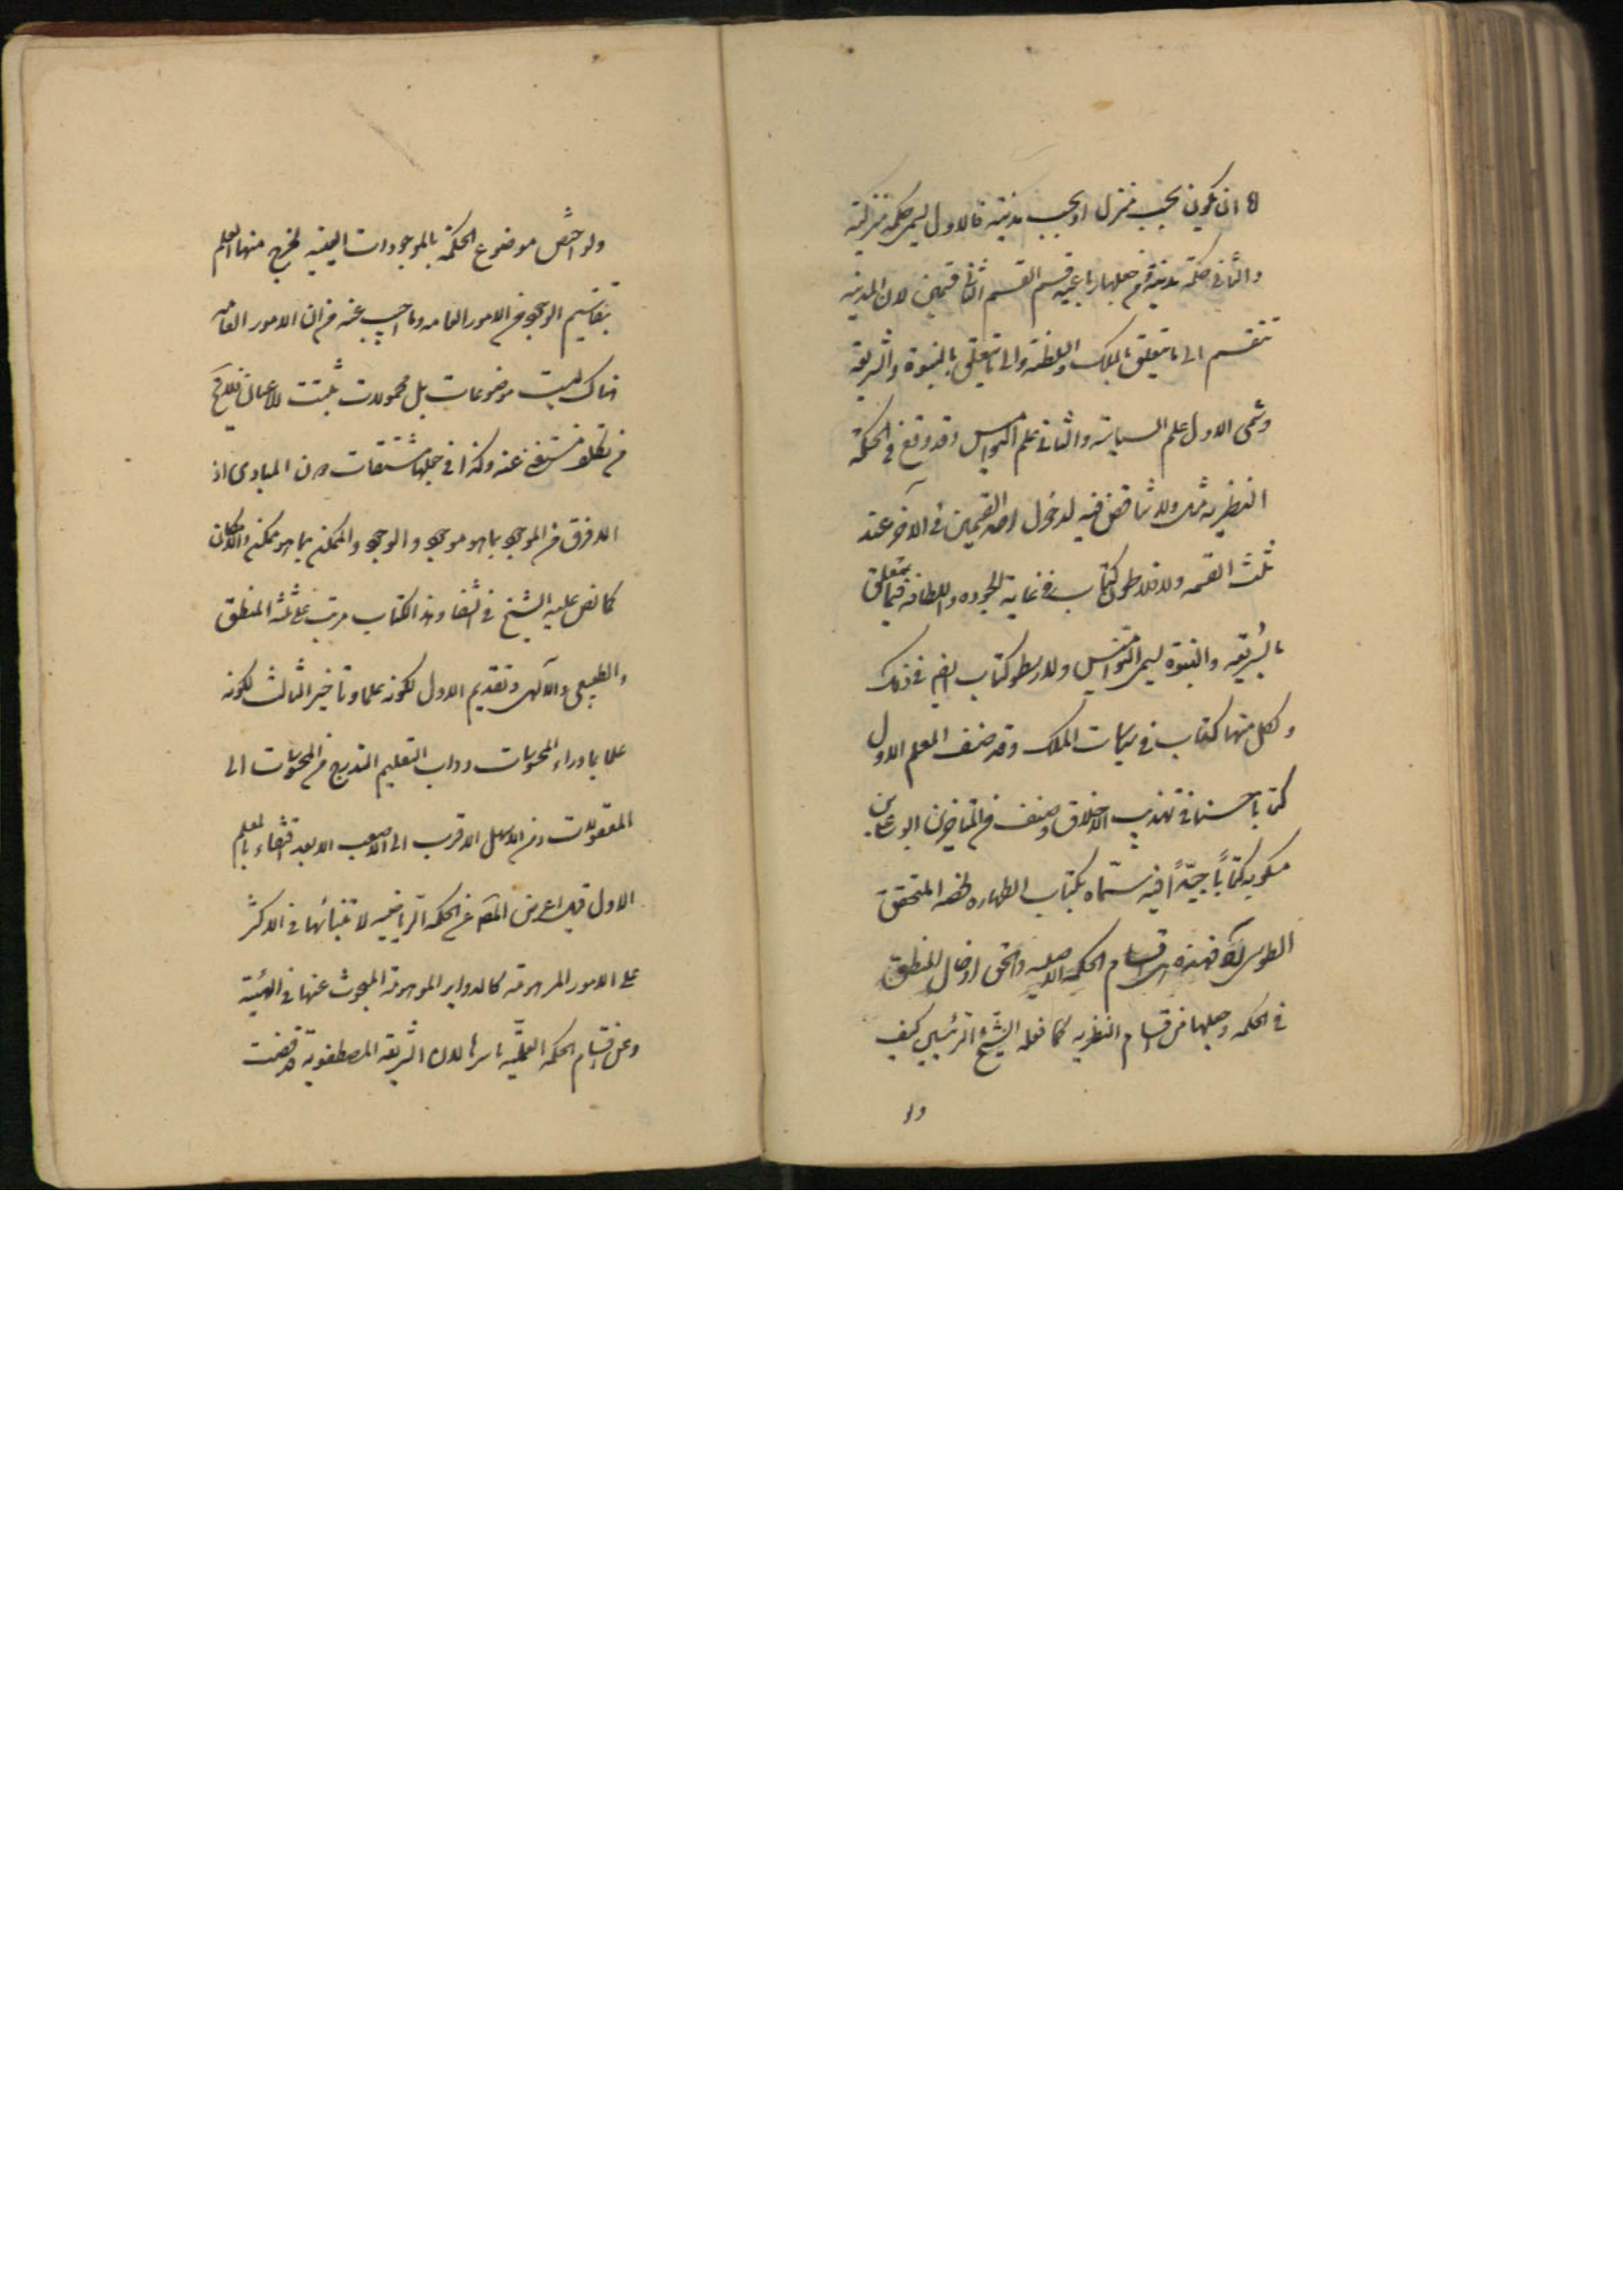 اما ان یکون بحسب منزل او بحسب مدینة فالاول یسمی حکمة منزلیة
والثانی حکمة مدنیة و من جعلها رباعیة قسم القسم الثالث قسمین لان المدنیة
تنقسم الی ما یتعلق بالملک والسلطنة والی ما یتعلق بالنبوة والشریعة
وسمی الاول علم السیاسة والثانی علم النوامیس وقد وقع فی الحکمة
النظریة مثله ولا تناقض فیه لدخول احد القسمین فی الآخر عند
تثلیث القسمة ولافلاطون کتاب فی غایة الجودة واللطافة فیما یتعلق
بالشریعة والنبوة یسمی النوامیس ولارسطو کتاب ایضا فی ذلک
ولکل منهما کتاب فی سیاسات الملک وقد صنف المعلم الاول
کتابا حسنا فی تهذیب الاخلاق وصنف من المتأخرین ابو علی بن
مسکویه کتاباً جیّداً فیه سمّاه بکتاب الطهارة لخصه المحقق
الطوسی فهذه هی اقسام الحکمة الاصلیة والحق ادخال المنطق
فی الحکمة وجعلها من اقسام النظریة کما فعله الشیخ الرئیس کیف
ولو
ولو اختص موضوع الحکمة بالموجودات العینیة لخرج منها العلم
بتقاسیم الوجود من الامور العامة وما اجیب عنه من ان الامور العامة
هناک لیست موضوعات بل محمولات تثبت للاعیان فلا یخ
من تکلف مستغنی عنه وکذا فی جعلها مشتقات دون المبادی اذ
لا فرق من الموجود بما هو موجود والوجود والممکن بما هو ممکن والامکان
کما نص علیه الشیخ فی الشفا وهذا الکتاب مرتب علی ثلثة المنطق
والطبیعی والآلهی وتقدیم الاول لکونه علما وتاخیر الثالث لکونه
علما بما وراء المحسوسات وداب التعلیم التدرج من المحسوسات الی
المعقولات ومن الاسهل الاقرب الی الاصعب الابعد اقتفاء بالمعلم
الاول قیل اعرض المص عن الحکمة الریاضیة لابتنائها فی الاکثر
علی الامور الموهومة کالدوایر الموهومة المبحوث عنها فی الهیئة
وعن اقسام الحکمة العملیّة باسرها لان الشریعة المصطفویة قد قضت